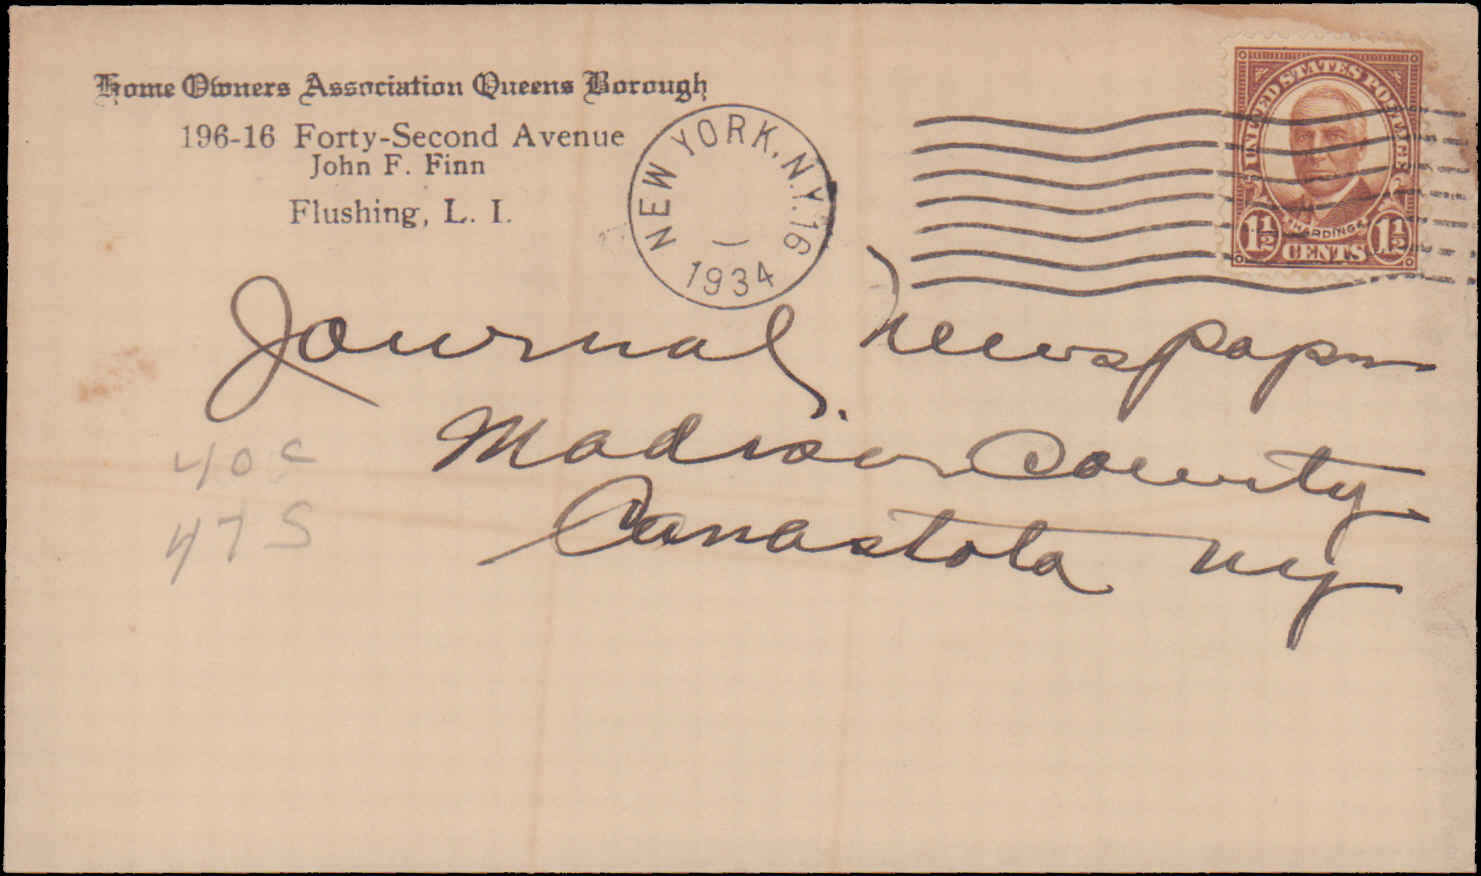 Home Owners Association Queens Borough
196-16 Forty-Second Avenue
John F. Finn
Flushing, L. I.
NEW YORK, N.Y. 16
1934
UNITED STATES POSTAGE
HARDING
1½ CENTS 1½
Journal Newspaper
Madison County
Canastota NY
40c
47S